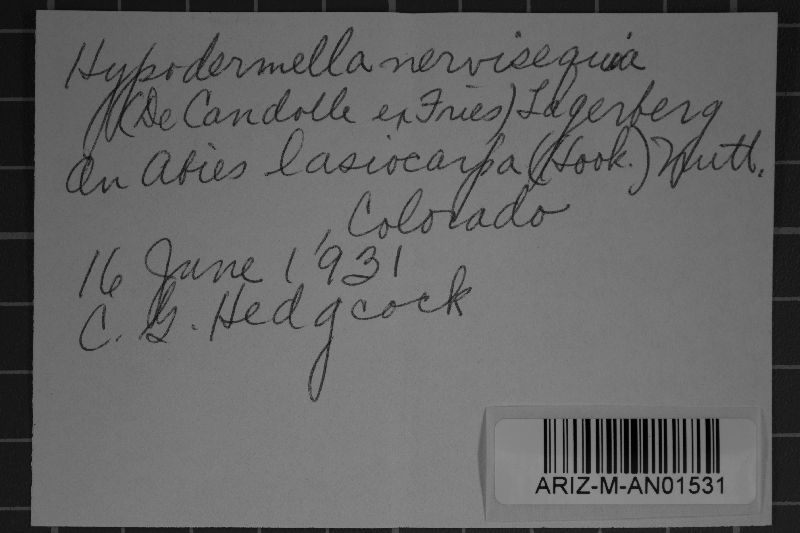 Hypodermella nervisequia
(De Candolle ex Fries) Lagerberg
On Abies lasiocarpa (Hook.) Nutt.
, Colorado
16 June 1931
C. G. Hedgcock
ARIZ-M-AN01531